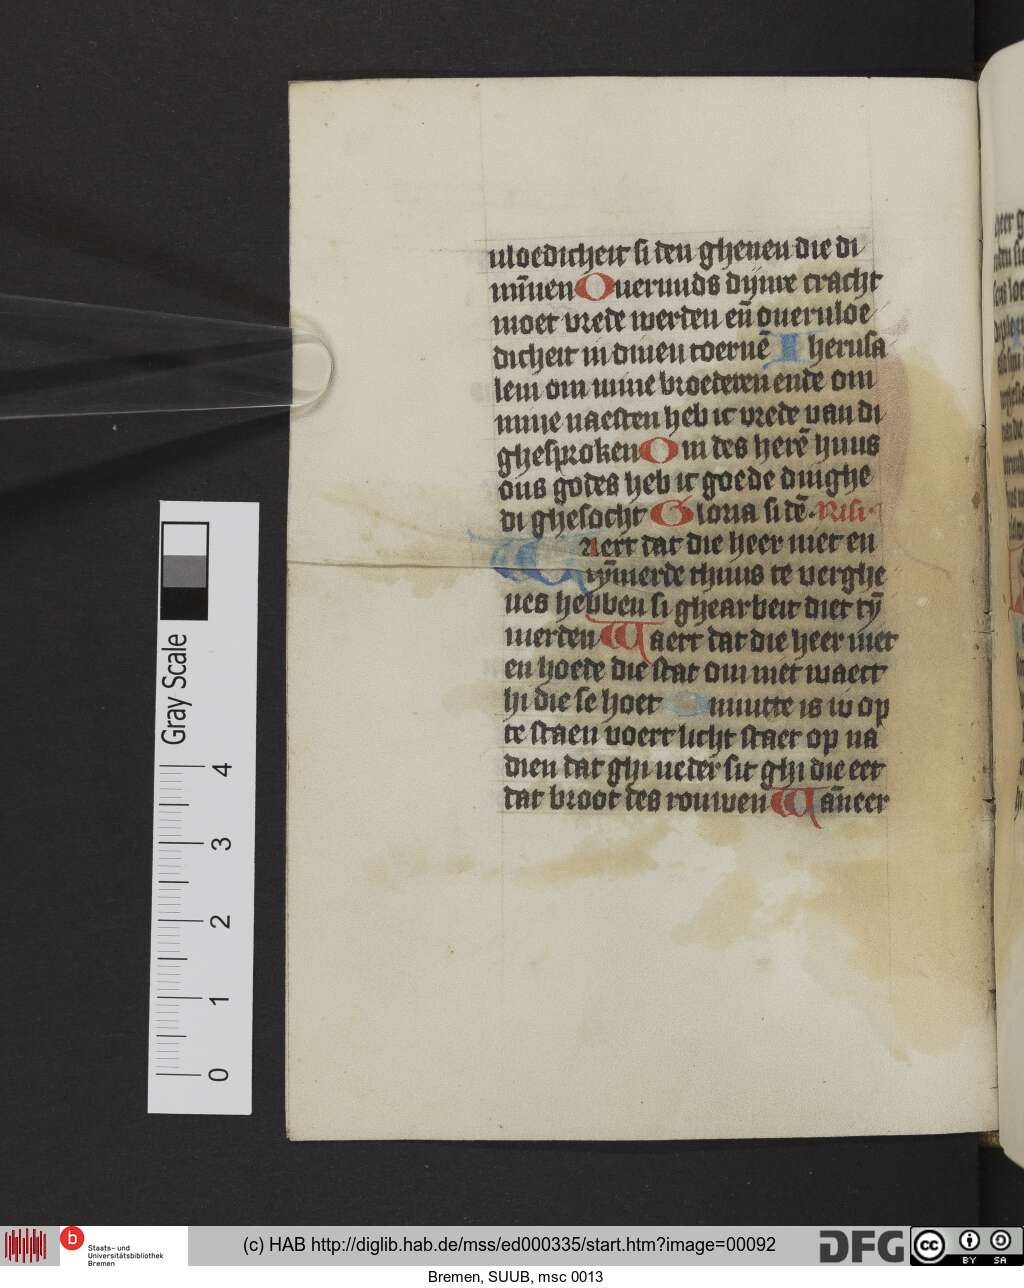 vloedicheit si den ghenen die di
mīnen Ouermids dijnre cracht
moet vrede werden eñ ouervloe
dicheit in dinen toernē Iherusa
lem om mine broederen ende om
mine naesten heb ic vrede van di
ghesproken Om des herē huus
ons godes heb ic goede dinghe
di ghesocht Gloria si dē. Nisi.
Waert dat die heer niet en
tȳmerde thuus te verghe
ues hebben si ghearbeit diet tȳ
merden Waert dat die heer niet
en hoede die stat om niet waect
hi die se hoet Onnutte is iv op
te staen voert licht staet op na
dien dat ghi neder sit ghi die eet
dat broot des rouwen Wañeer
Gray Scale
4
3
2
1
0
b
Staats- und
Universitätsbibliothek
Bremen
(c) HAB http://diglib.hab.de/mss/ed000335/start.htm?image=00092
DFG
cc
BY SA
Bremen, SUUB, msc 0013